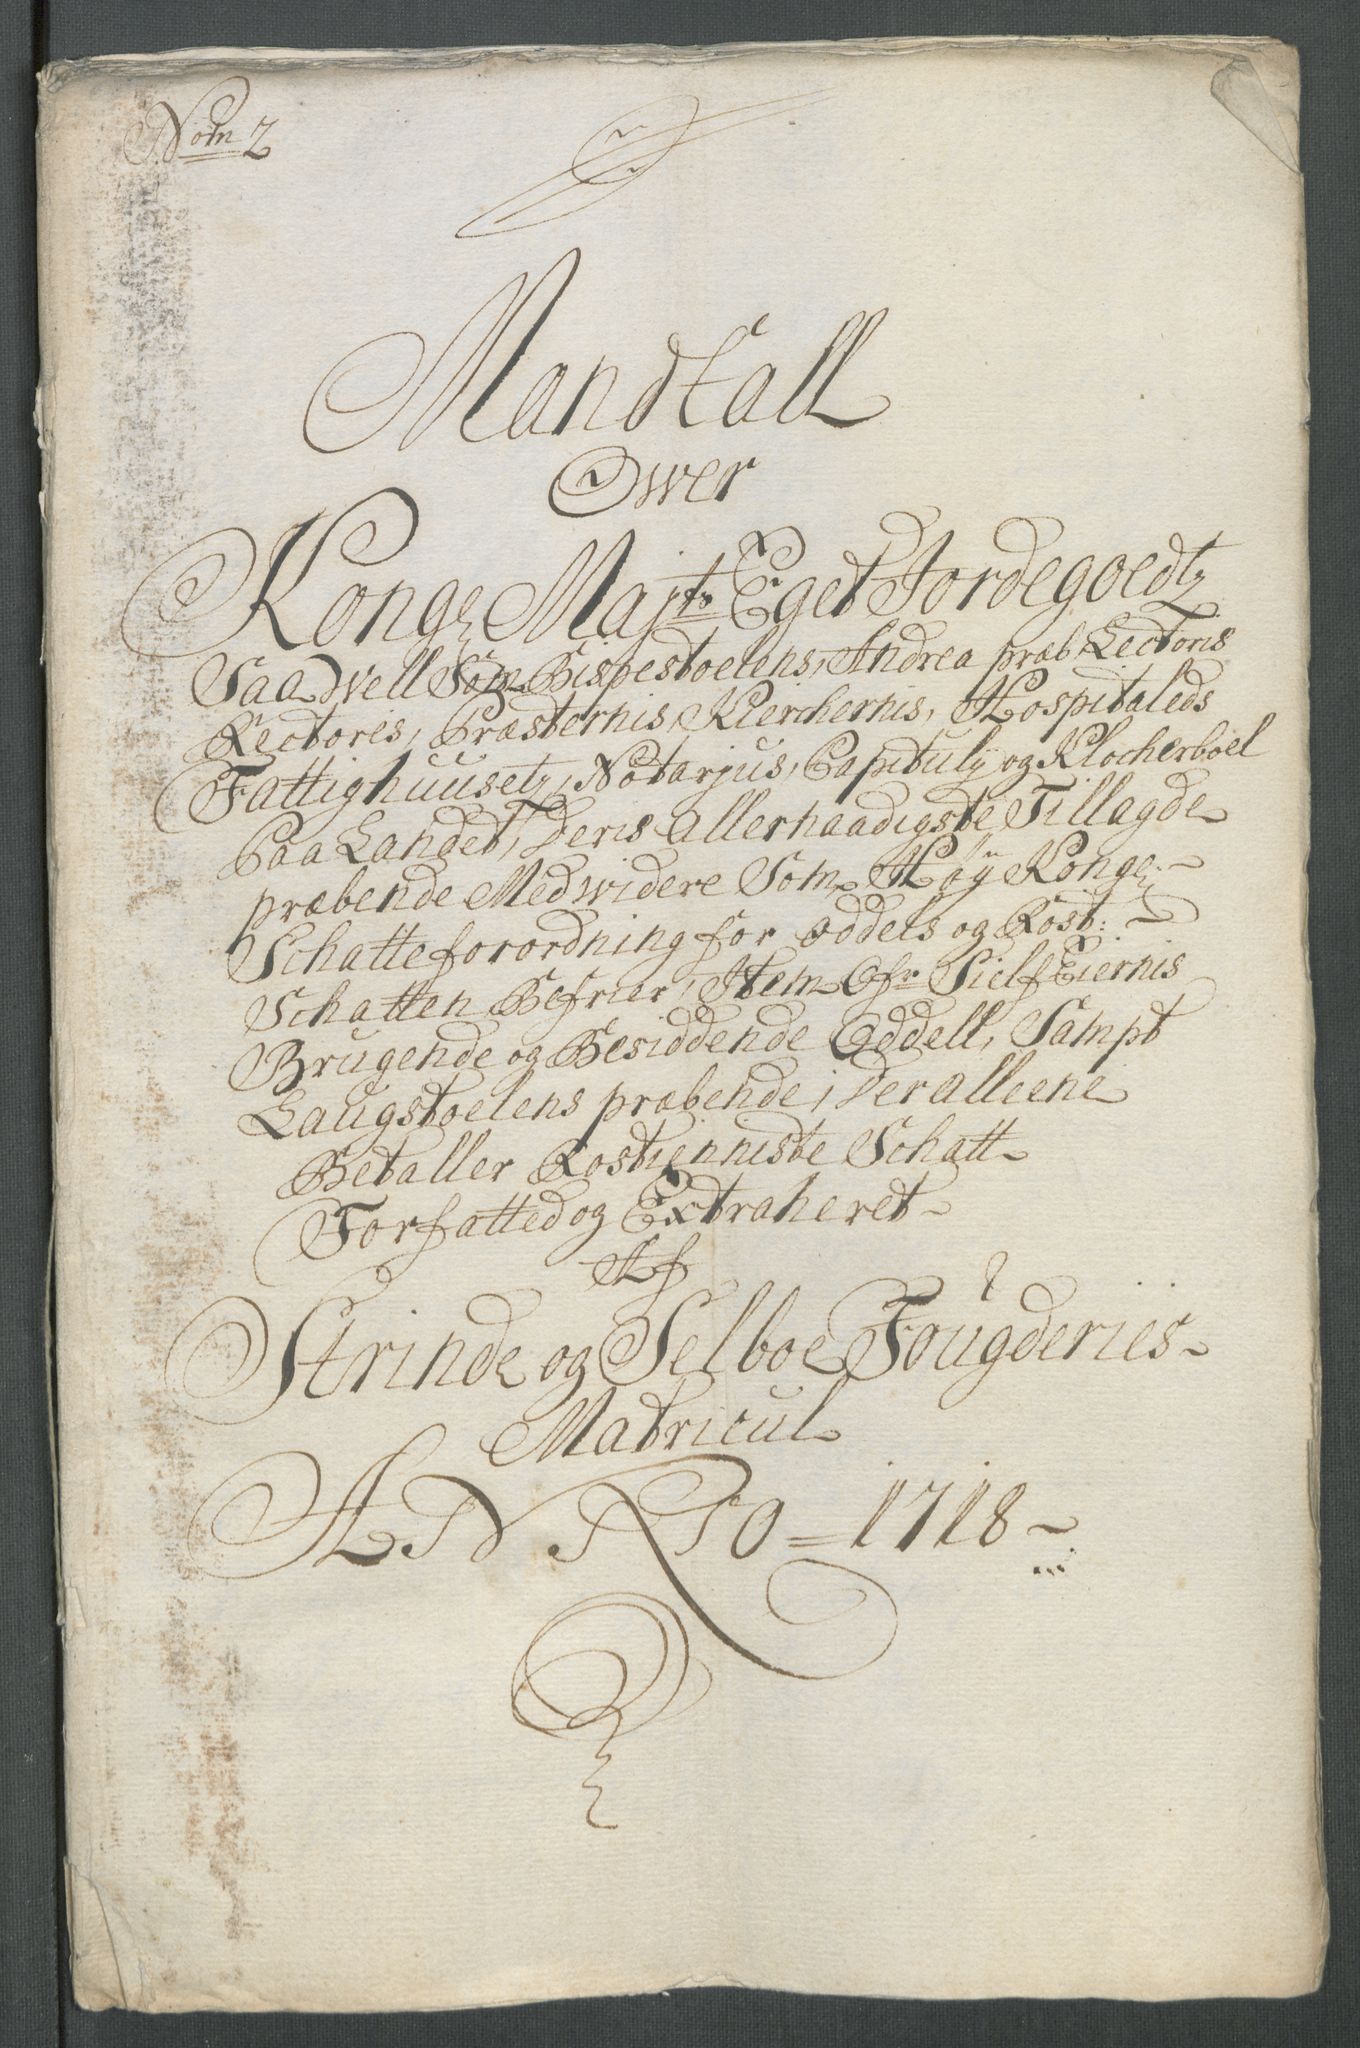 Nom 2
Mandtall
Ower
Kong Majts Eget Jordegoedtz
Saa Well Som Bispestoelens, Andrea præb: Lectoris
Rectores, Præsternis, Kierchernis, Hospitaleds
Fattighuusetz, Notarjus, Capitulj og Klocherboel
Paa Landet, deris Allerhaadigste Tillagde
præbende Medwidere Som Høy Konge:
Schatteforordning for oddels og Rost:
Schatten Befrier, Item Ofr Sielf Eiernis
Brugende og Besiddende Oddell, Sampt
Laugstoelens præbende, der alleene
Betaller Rostienniste Schatt
Forfatted og Extraheret
Af
Strinde og Selboe Fougderies
Matricul
ANNO = 1718